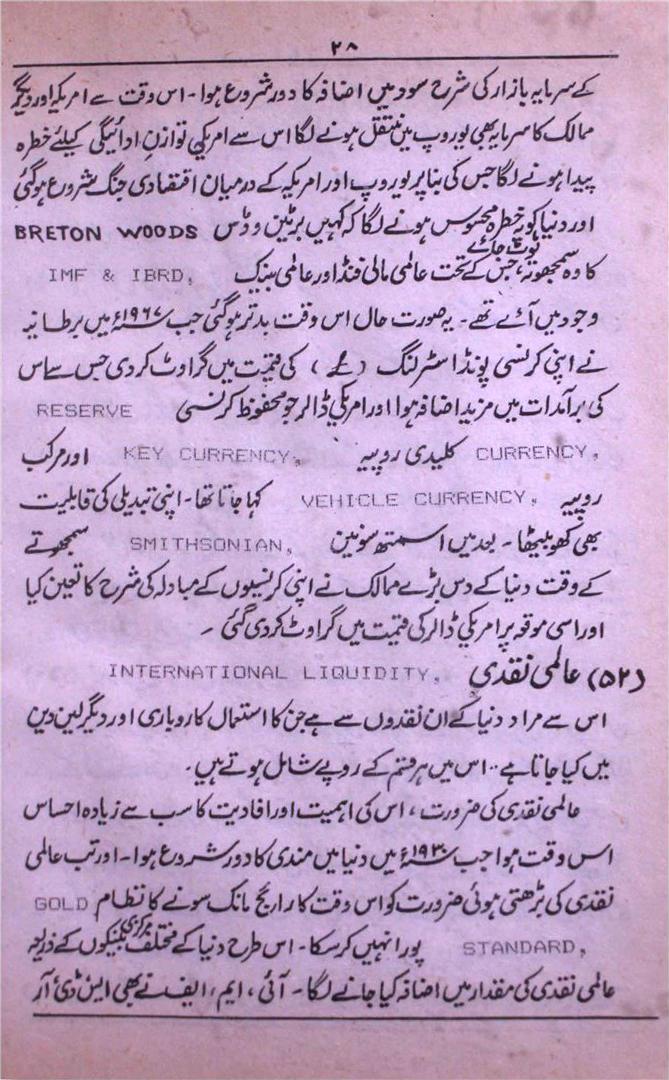 ۲۸
کے سرمایہ بازار کی شرح سود میں اضافہ کا دور شروع ہوا۔ اس وقت سے امریکہ اور دیگر
ممالک کا سرمایہ بھی یوروپ میں منتقل ہونے لگا اس سے امریکی توازن ادائیگی کیلئے خطرہ
پیدا ہونے لگا جس کی بنا پر یوروپ اور امریکہ کے درمیان اقتصادی جنگ شروع ہوگئی
اور دنیا کو یہ خطرہ محسوس ہونے لگا کہ کہیں بریٹن وڈس BRETON WOODS
کا وہ سمجھوتہ ٹوٹ جائے، جس کے تحت عالمی مالی فنڈ اور عالمی بینک IMF & IBRD,
وجود میں آئے تھے۔ یہ صورت حال اس وقت بدتر ہوگئی جب ۱۹۶۷ء میں برطانیہ
نے اپنی کرنسی پونڈ اسٹرلنگ (£) کی قیمت میں گراوٹ کردی جس سے اس
کی برآمدات میں مزید اضافہ ہوا اور امریکی ڈالر جو محفوظ کرنسی RESERVE
CURRENCY, کلیدی روپیہ KEY CURRENCY, اور مرکب
روپیہ VEHICLE CURRENCY, کہا جاتا تھا۔ اپنی تبدیلی کی قابلیت
بھی کھو بیٹھا۔ بعد میں اسمتھ سونین SMITHSONIAN, سمجھوتے
کے وقت دنیا کے دس بڑے ممالک نے اپنی کرنسیوں کے مبادلہ کی شرح کا تعین کیا
اور اسی موقعہ پر امریکی ڈالر کی قیمت میں گراوٹ کردی گئی۔
(۵۲) عالمی نقدی INTERNATIONAL LIQUIDITY,
اس سے مراد دنیا کے ان نقدوں سے ہے جن کا استعمال کاروباری اور دیگر لین دین
میں کیا جاتا ہے۔ اس میں ہر قسم کے روپے شامل ہوتے ہیں۔
عالمی نقدی کی ضرورت، اس کی اہمیت اور افادیت کا سب سے زیادہ احساس
اس وقت ہوا جب ۱۹۳۰ء میں دنیا میں مندی کا دور شروع ہوا۔ اور تب عالمی
نقدی کی بڑھتی ہوئی ضرورت کو اس وقت کا رائج مانک سونے کا نظام GOLD
STANDARD, پورا نہیں کرسکا۔ اس طرح دنیا کے مختلف مرکزی بینکوں کے ذریعہ
عالمی نقدی کی مقدار میں اضافہ کیا جانے لگا۔ آئی، ایم، ایف نے بھی ایس ڈی آر